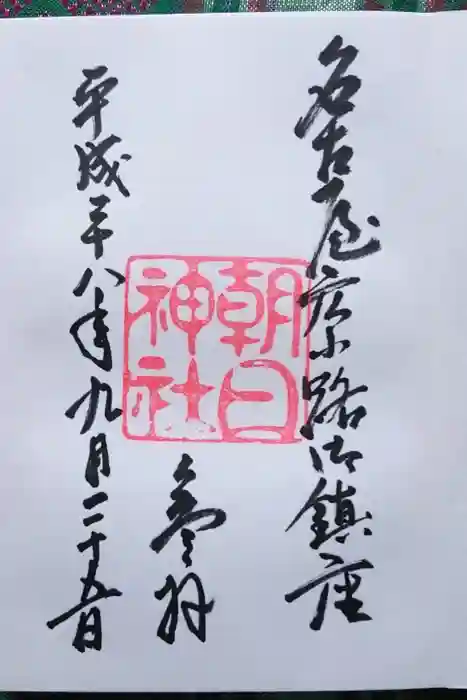 名古屋京路御鎮座
朝日
神社
参拝
平成二十八年九月二十五日